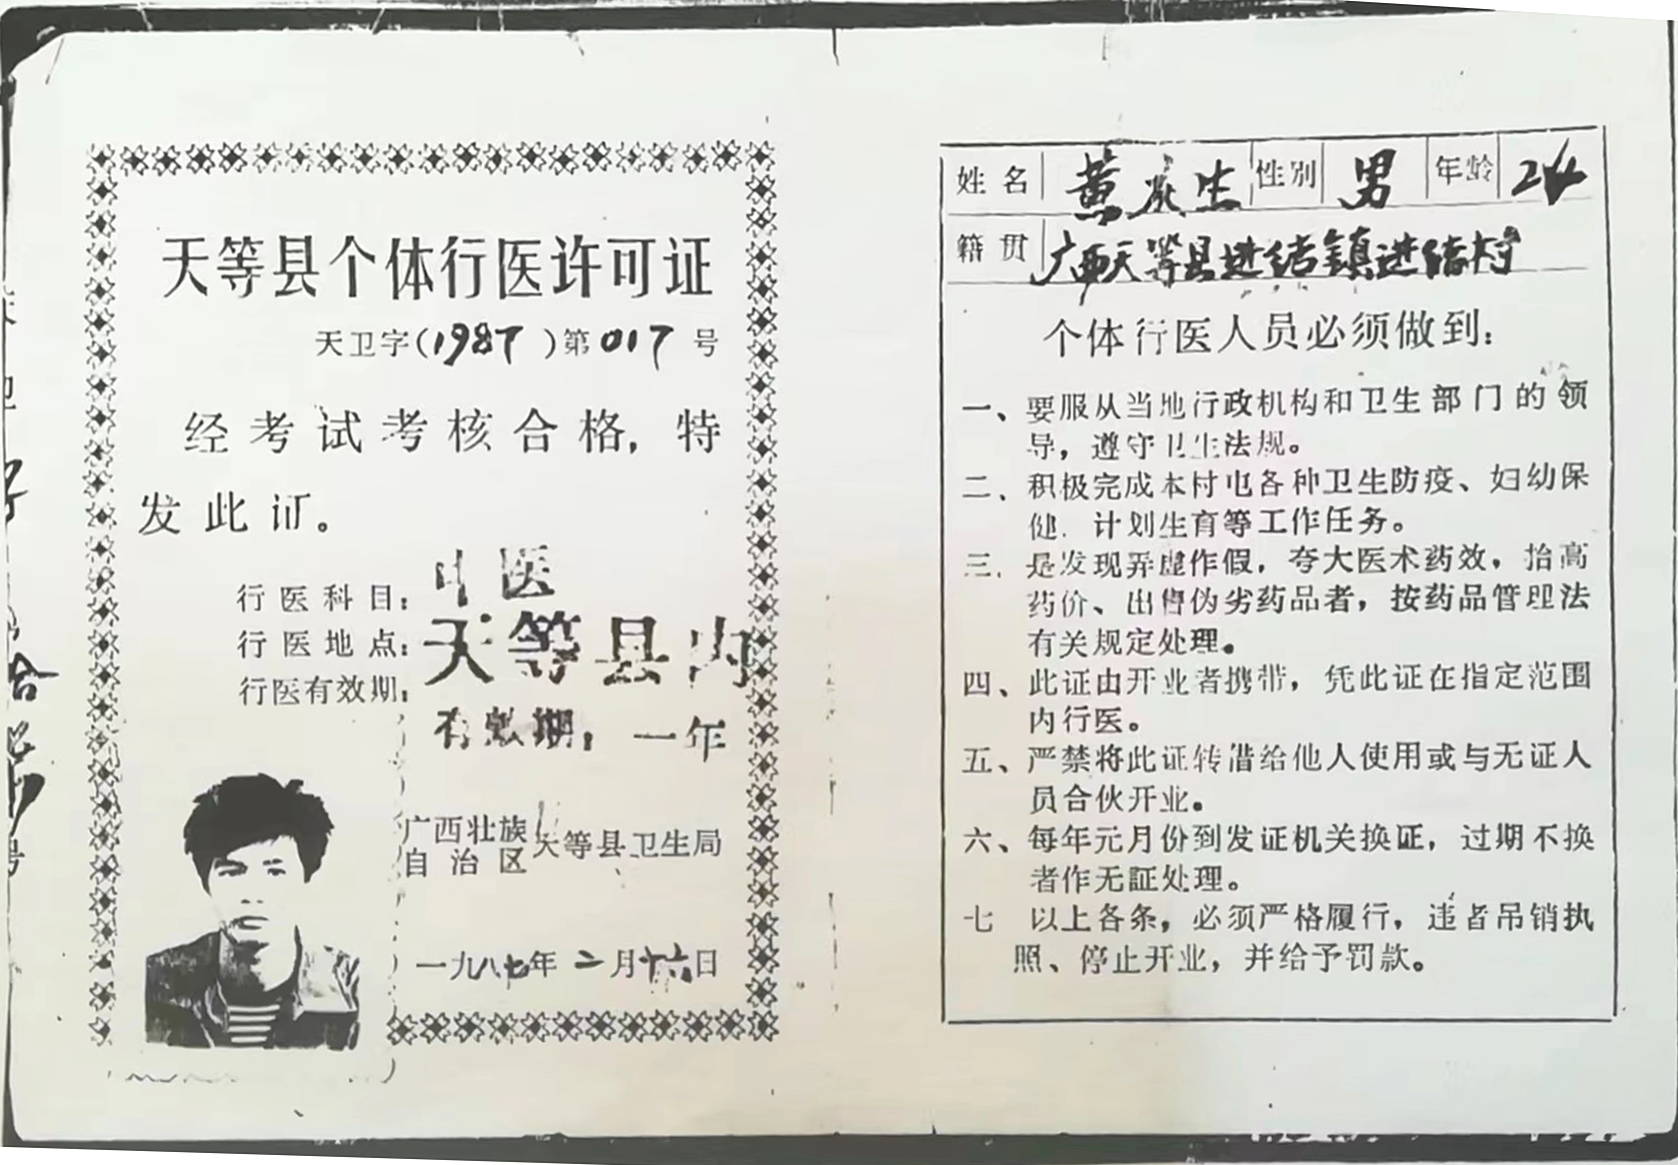 天等县个体行医许可证
天卫字(1987)第017号
经考试考核合格,特
发此证。
行医科目: 中医
行医地点: 天等县内
行医有效期:
有效期: 一年
广西壮族自治区天等县卫生局
一九八七年二月十六日
姓名 黄 生 性别 男 年龄 24
籍贯 广西天等县进结镇进结村
个体行医人员必须做到:
一、要服从当地行政机构和卫生部门的领
导,遵守卫生法规。
二、积极完成本村屯各种卫生防疫、妇幼保
健、计划生育等工作任务。
三、是发现弄虚作假,夸大医术药效,抬高
药价、出售伪劣药品者,按药品管理法
有关规定处理。
四、此证由开业者携带,凭此证在指定范围
内行医。
五、严禁将此证转借给他人使用或与无证人
员合伙开业。
六、每年元月份到发证机关换证,过期不换
者作无証处理。
七 以上各条,必须严格履行,违者吊销执
照、停止开业,并给予罚款。